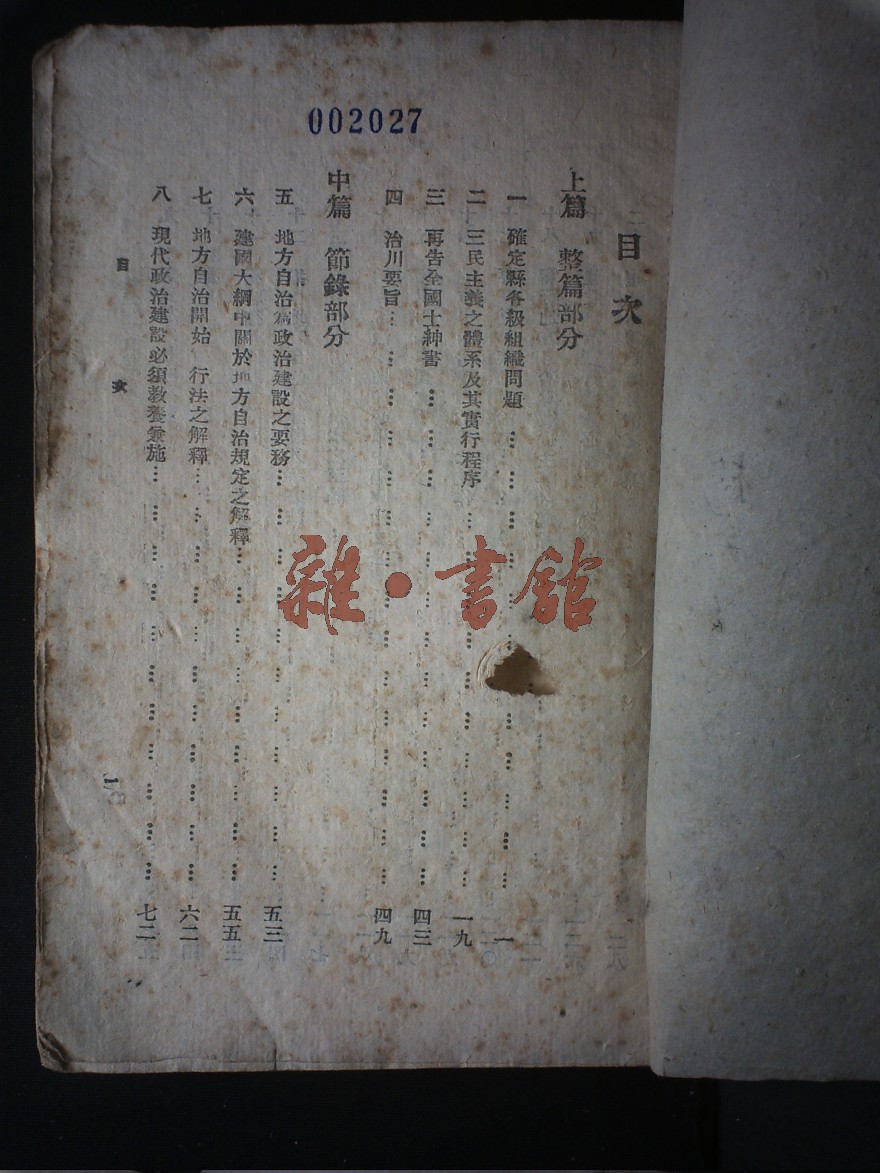 002027
目次
上篇 整篇部分
一 確定縣各級組織問題 一
二 三民主義之體系及其實行程序 一九
三 再告全國士紳書 四三
四 治川要旨 四九
中篇 節錄部分
五 地方自治為政治建設之要務 五三
六 建國大綱中關於地方自治規定之解釋 五五
七 地方自治開始 行法之解釋 六二
八 現代政治建設必須教養兼施 七二
目次
一
雜·書館